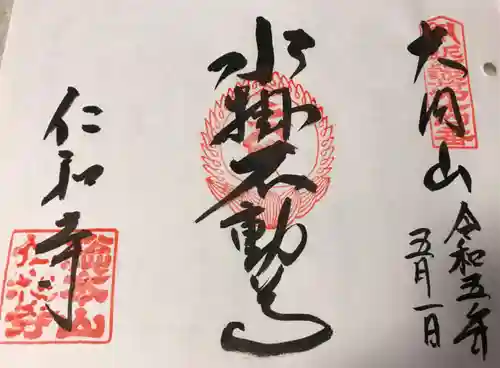 大内山
令和五年
五月一日
水掛不動尊
仁和寺
総本山
仁和寺